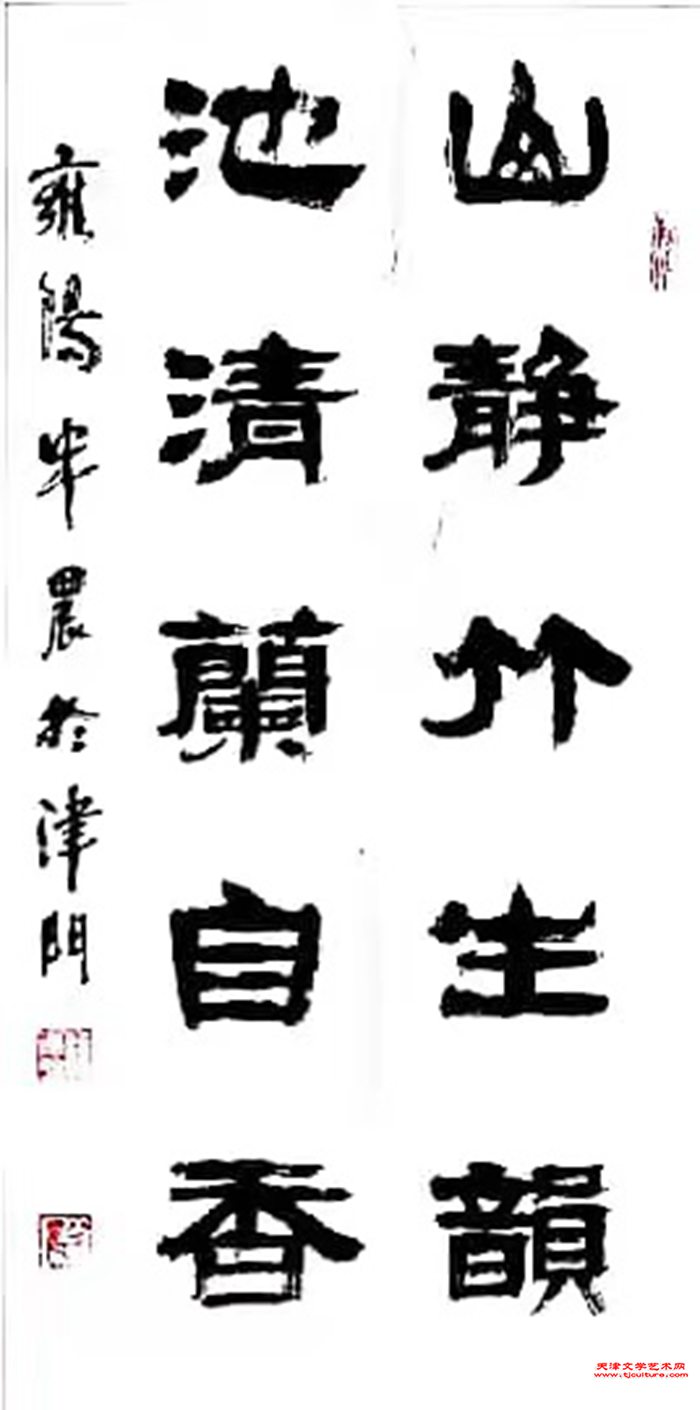 山静竹生韻
池清蘭自香
雍陽半農於津門
天津文学艺术网
www.tjculture.com